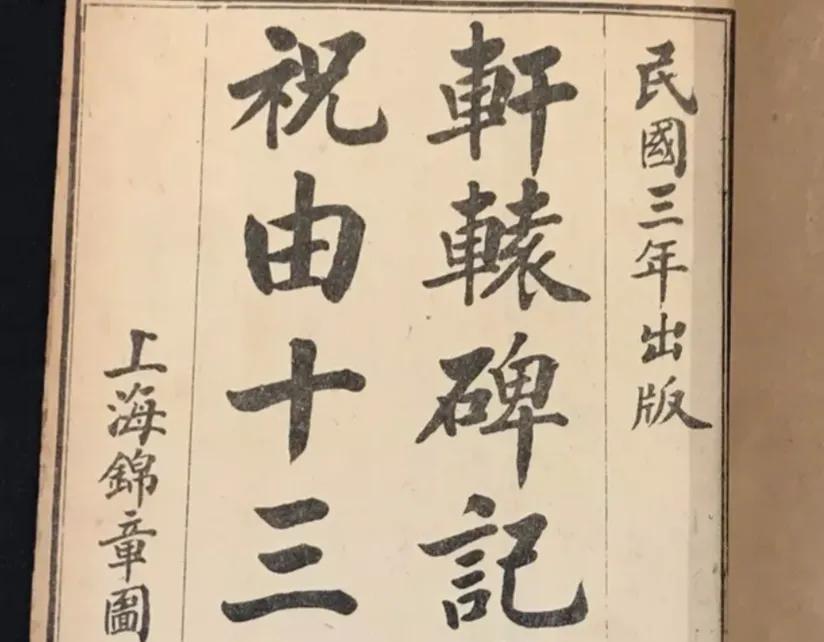 民國三年出版
軒轅碑記
祝由十三
上海錦章圖